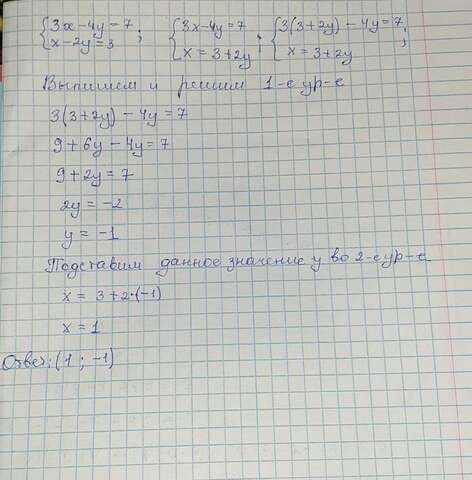 {3x-4y=7 {3x-4y=7 {3(3+2y)-4y=7
{x-2y=3 ; {x=3+2y ; {x=3+2y ;
Выпишем и решим 1-е ур-е
3(3+2y)-4y=7
9+6y-4y=7
9+2y=7
2y=-2
y=-1
Подставим данное значение y во 2-е ур-е
x=3+2·(-1)
x=1
Ответ: (1; -1)